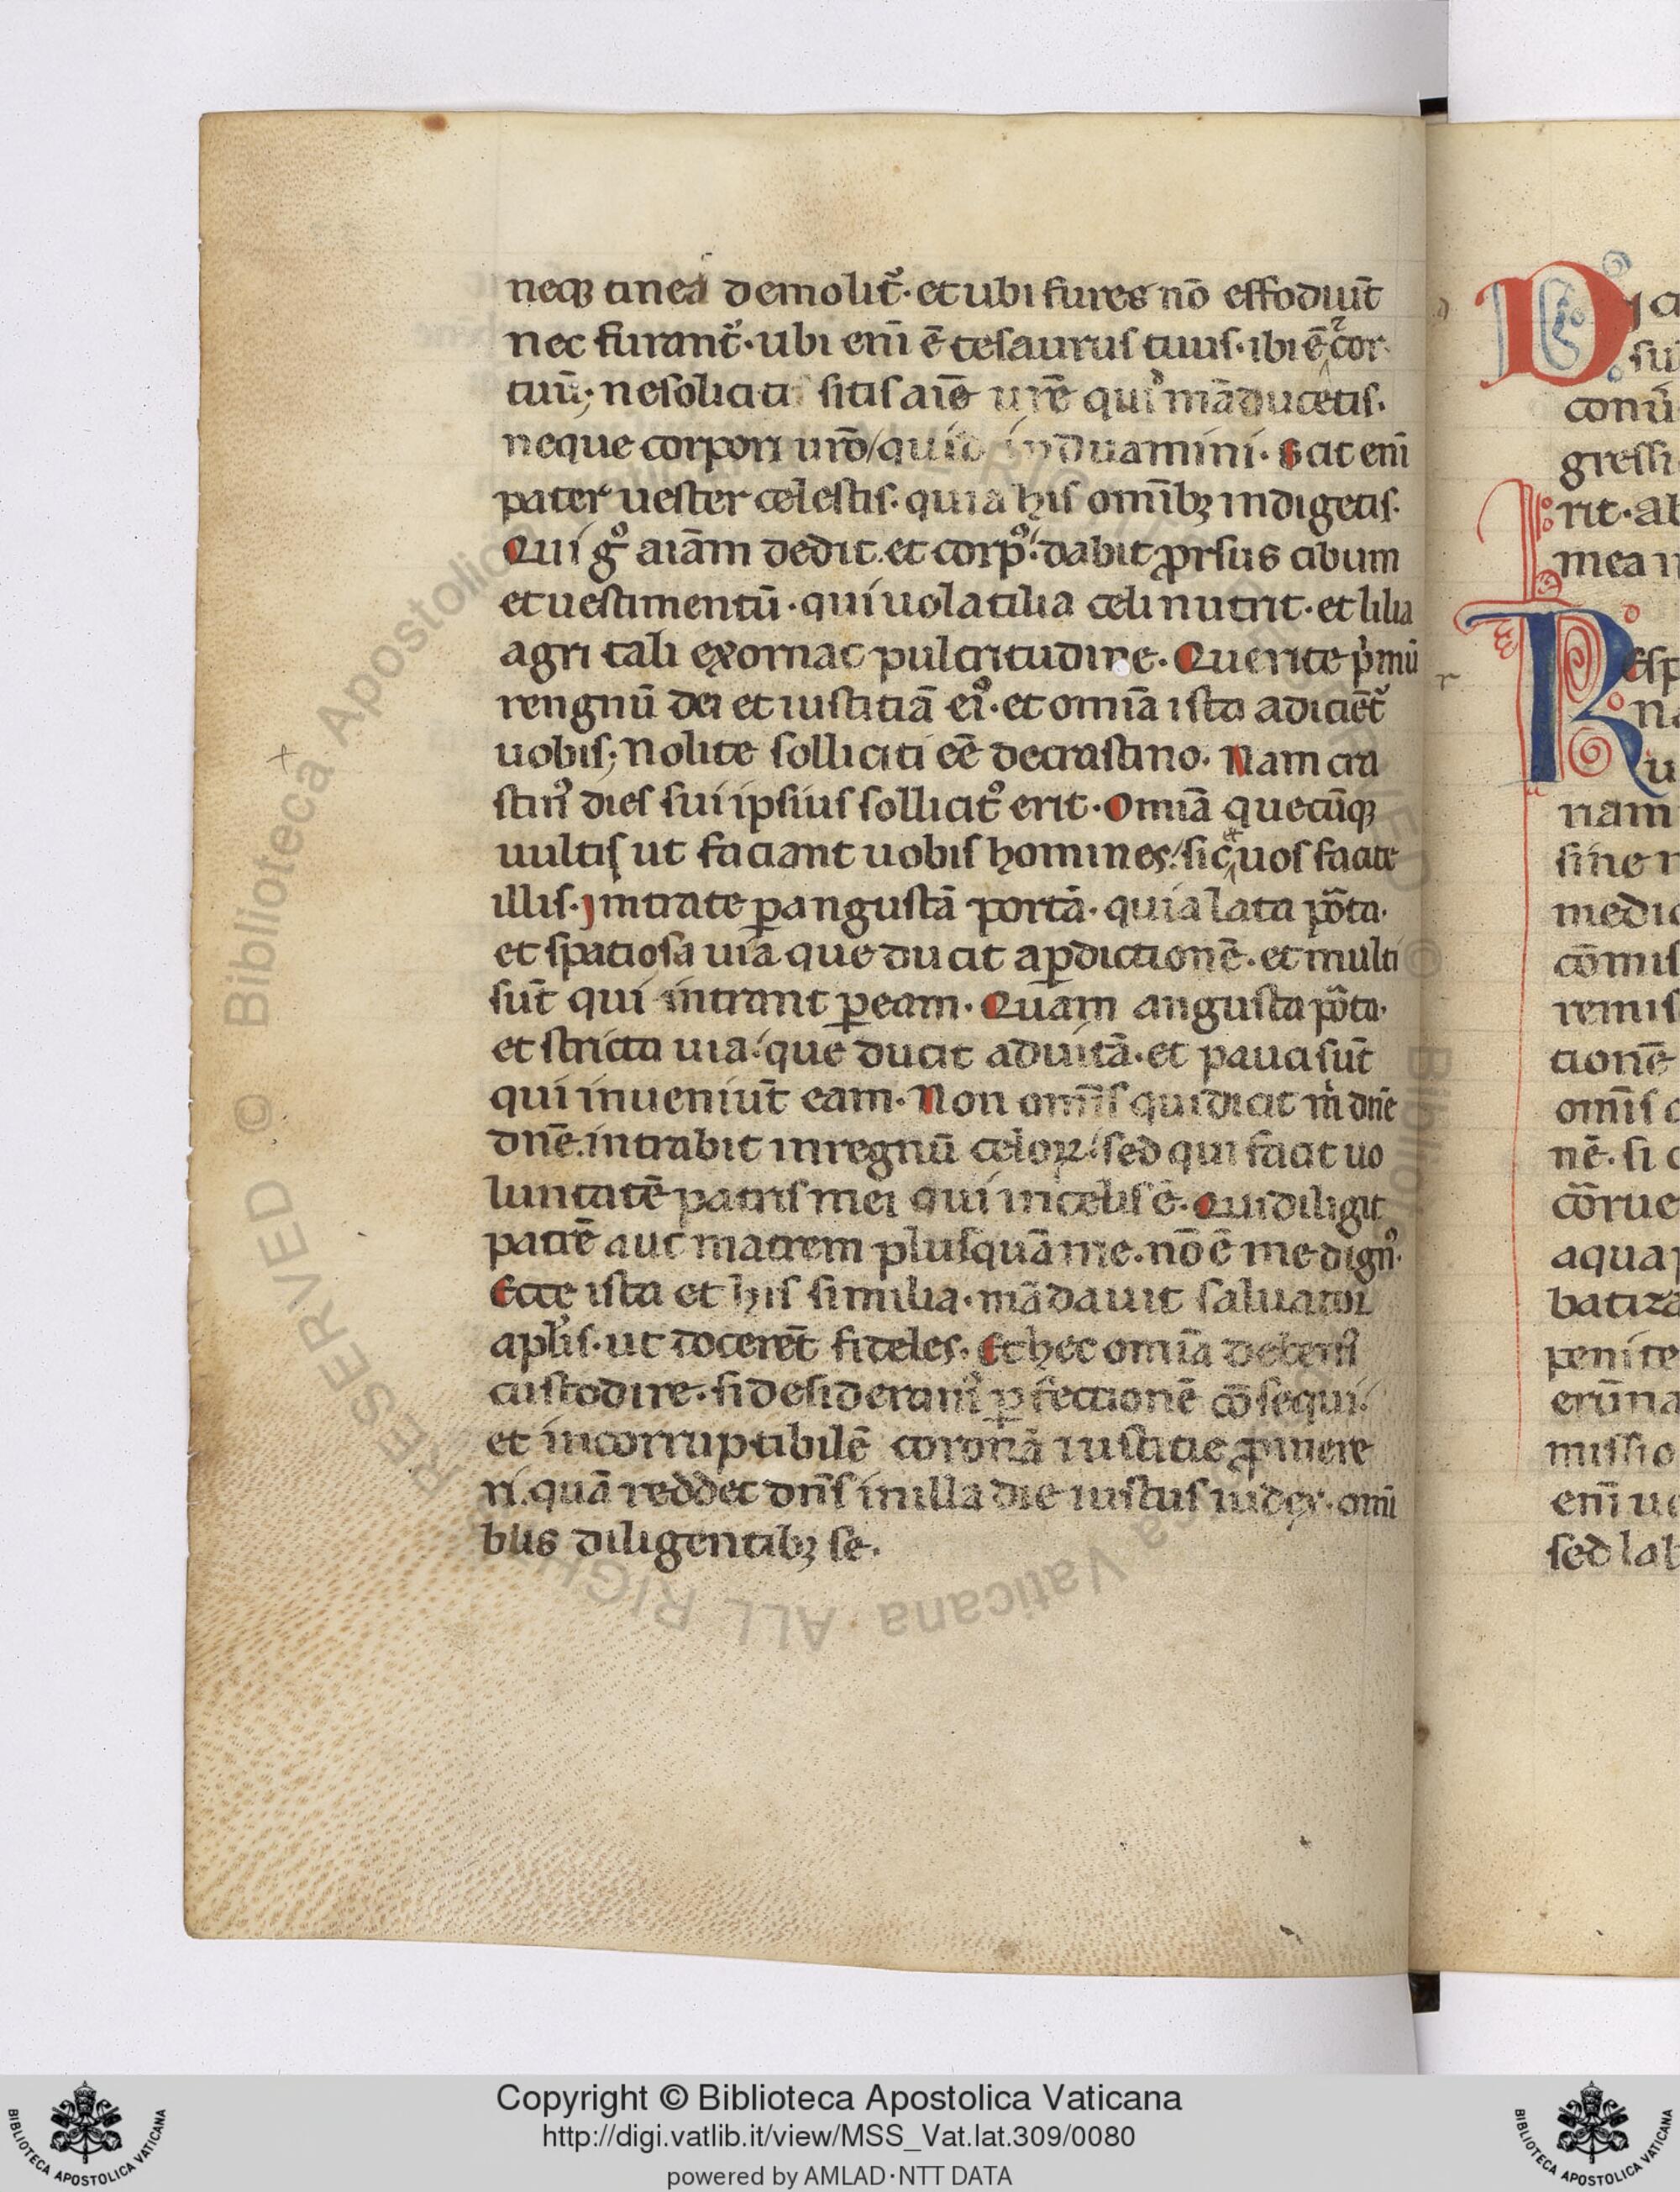 neqꝫ tinea demolit᷑· et ubi fures nō effodiūt
nec furant᷑· ubi eni᷑ ē tesaurus tuus· ibi ē ⁊ cor
tuū; ne soliciti sitis aīe ur̄e quid māducetis·
neque corpori ur̄o / quid induamini· Scit enī
pater uester celestis· quia his omībꝫ indigetis·
Qui gͦ aīam dedit et corpꝰ· dabit ꝓrsus cibum
et uestimentū· qui uolatilia celi nutrit· et lilia
agri tali exornat pulcritudine· Querite p̍mū
rengnū dei et iustitiā eiꝰ· et omīa ista adiciēt᷑
uobis; Nolite solliciti eē de crastino· Nam cra
stinꝰ dies sui ipsius sollicitꝰ erit· Omīa quecūqꝫ
uultis ut faciant uobis homines· sic et uos facite
illis· Intrate ꝑ angustā portā· quia lata porta·
et spatiosa uia que ducit a ꝑdictionē· et multi
sūt qui intrant ꝑ eam· Quam angusta porta·
et stricta uia· que ducit ad uitā· et pauci sūt
qui inueniūt eam· Non omīs qui dicit m̍ dn̄e
dn̄e intrabit in regnū celoꝝ· sed qui facit uo
luntatē patris mei qui in celis ē· Qui diligit
patrē aut matrem plus quā me· nō ē me dignꝰ·
Ecce ista et his similia· mādauit saluator
apl̄is· ut docerēt fideles· Et hec omīa debemꝰ
custodire· si desideramꝰ ꝑfectionē cōsequi·
et incorruptibilē coronā iustitie ꝓmere
ri· quā reddet dn̄s in illa die iustus iudex· omī
bus diligentibꝫ se·
esp
nam
sine
medic
cōmis
remis
tionē
omīs
nē· si
cōrue
aqua
batiza
penite
missio
enī
sed lab
Copyright © Biblioteca Apostolica Vaticana
http://digi.vatlib.it/view/MSS_Vat.lat.309/0080
powered by AMLAD·NTT DATA
BIBLIOTECA APOSTOLICA VATICANA
BIBLIOTECA APOSTOLICA VATICANA
© Biblioteca Apostolica Vaticana ALL RIGHTS RESERVED